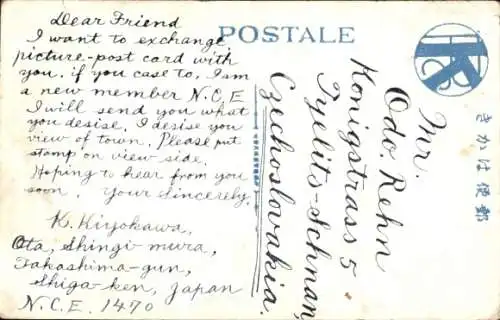 Dear Friend
I want to exchange
picture-post card with
you. if you case to. I am
a new member N.C.E
I will send you what
you desise. I desise you
view of town. Please put
stamp on view side.
Hoping to hear from you
soon. Your sincerely.
K. Kiyokawa,
Ota, Shingi-mura,
Takashima-gun,
Shiga-ken, Japan
N.C.E. 1470
POSTALE
Mr.
Odo. Rehn
Konigstrass 5
Tyelits-Schnan,
Czechoslovakia.
きかは便郵